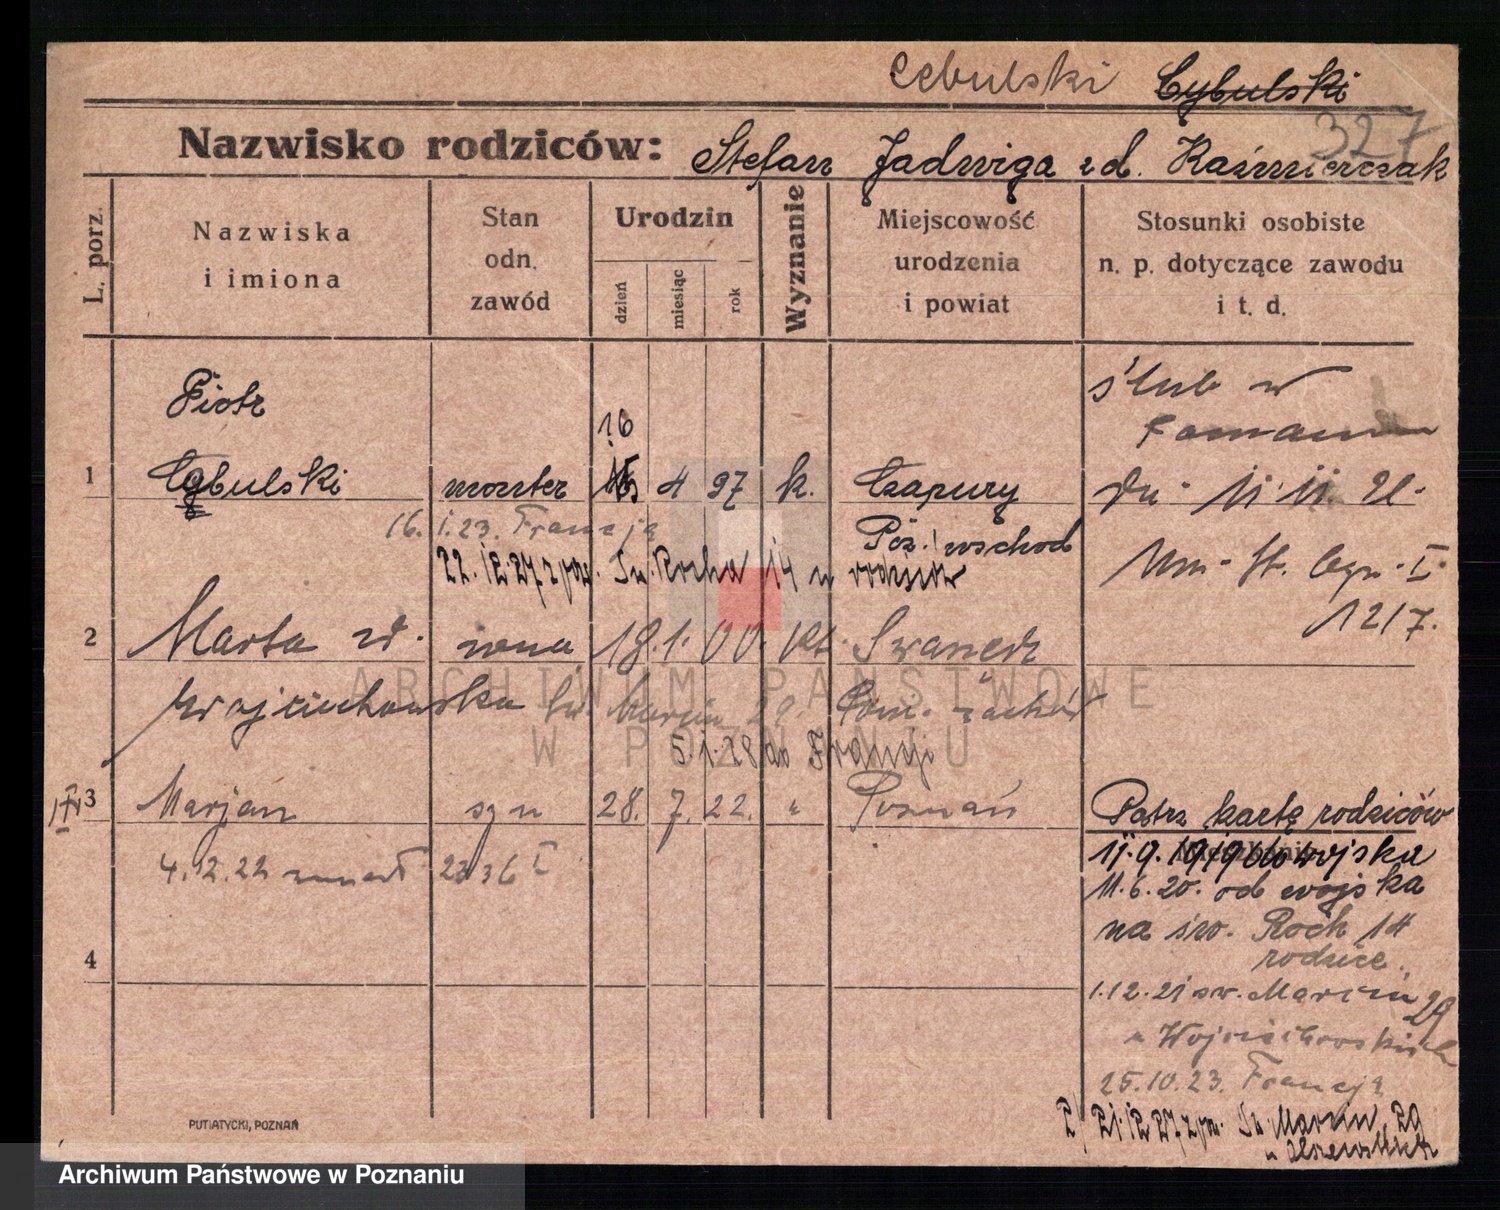 Cebulski Cybulski
327
Nazwisko rodziców: Stefan Jadwiga zd. Kaźmierczak
L. porz.
Nazwiska
i imiona
Stan
odn.
zawód
Urodzin
dzień
miesiąc
rok
Wyznanie
Miejscowość
urodzenia
i powiat
Stosunki osobiste
n. p. dotyczące zawodu
i t. d.
Piotr
16
1 Cybulski monter 15 4 97 k. Czapury
16.1.23. Francją Poz. wschod
22.12.27 z pow. Św. Rocha 14 u rodziców
ślub w
Poznaniu
dn. 11.11. 21.
Um. St. Cyw. I.
1217.
2 Marta zd. żona 18.1.00. kt. Swarzędz
Wojciechowska św. Marcin 29. Pozn. zachód
5.1.28 do Francji
3 Marjan syn 28. 7. 22. " Poznań
4.12.22 zmarł 2236 I
Patrz kartę rodziców
11.9.1919 do wojska
11.6.20. od wojska
na św. Roch 14
rodzice
1.12.21 św. Marcin 29
u Wojciechowskich
25.10.23. Francją
2/ 21.12.27 z pow. Św. Marcin 29
4
PUTIATYCKI, POZNAŃ
ARCHIWUM PAŃSTWOWE
W POZNANIU
Archiwum Państwowe w Poznaniu